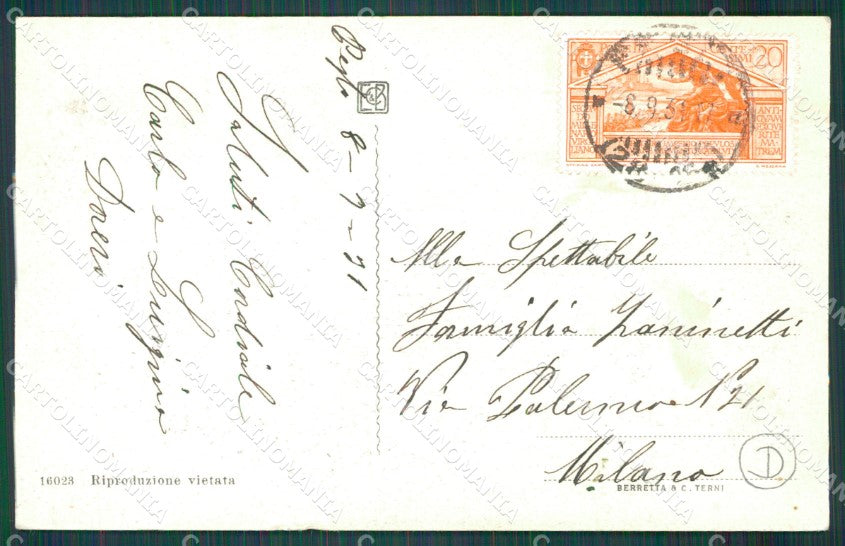 8-9-31
Saluti Cordiali
Carla e Luigia
Alla Spettabile
Famiglia Zaninetti
Via Palermo N 21
Milano
16023 Riproduzione vietata
BERRETTA & C. TERNI
D
20
-8.9.31
CARTOLINOMANIA